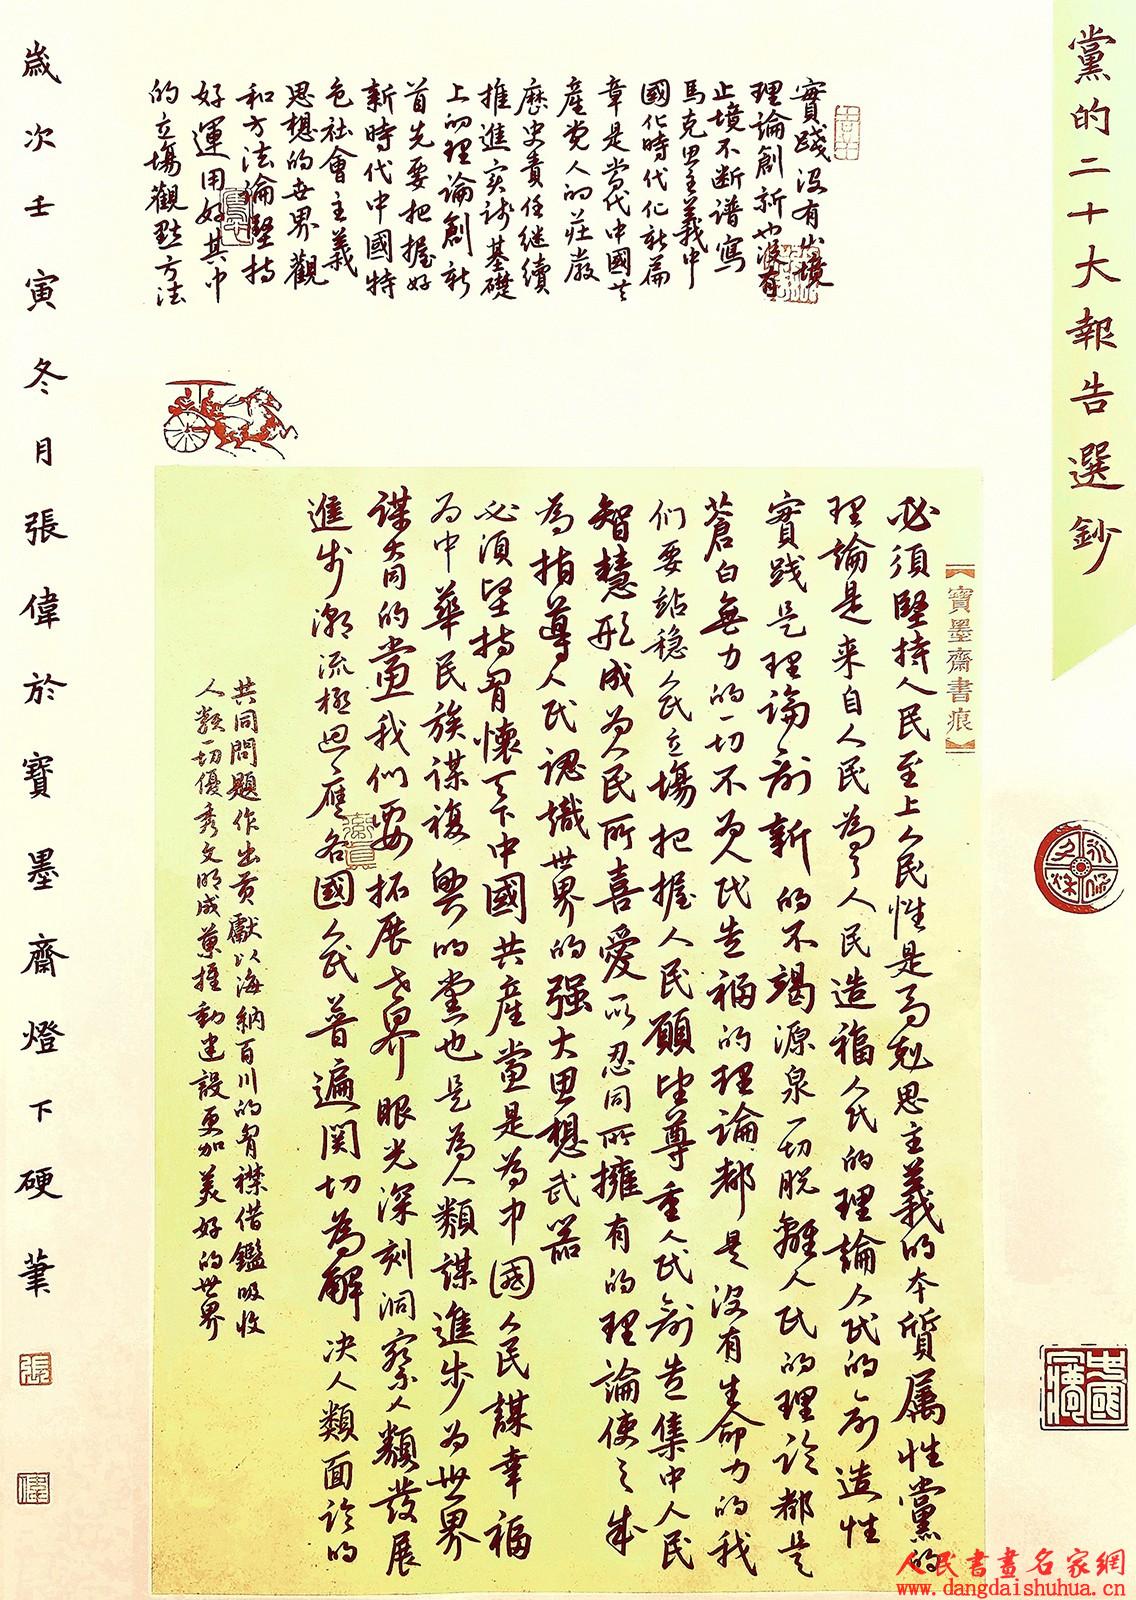 黨的二十大報告選鈔
實踐沒有止境
理論創新也沒有
止境不断谱寫
馬克思主義中
國化時代化新篇
章是當代中國共
產党人的莊嚴
歷史責任继续
推進实踐基礎
上的理論創新
首先要把握好
新時代中國特
色社會主義
思想的世界觀
和方法論堅持
好運用好其中
的立場觀點方法
【寶墨齋書痕】
必须堅持人民至上人民性是馬尅思主義的本質属性黨的
理論是来自人民為了人民造福人民的理論人民的創造性
實践是理論創新的不竭源泉一切脱離人民的理论都是
蒼白無力的一切不为人民造福的理論都是没有生命力的我
们要站稳人民立場把握人民願望尊重人民創造集中人民
智慧形成为人民所喜愛所忍同所擁有的理論使之成
為指導人民認識世界的强大思想武器
必須堅持胷懷天下中國共産黨是為中國人民謀幸福
为中華民族谋複興的黨也是為人類謀進步为世界
谋大同的黨我们要拓展世界眼光深刻洞察人類發展
進步潮流極回應各國人民普遍関切為解决人類面临的
共同問題作出貢獻以海納百川的胷襟借鑑吸收
人類一切優秀文明成菓推動建設更加美好的世界
歲次壬寅冬月張偉於寶墨齋燈下硬筆
張
偉
人民書畫名家網
www.dangdaishuhua.cn